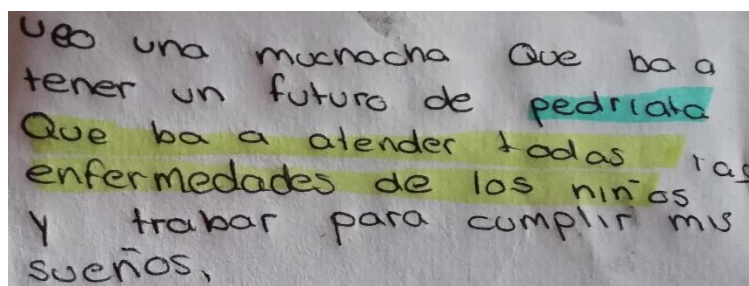 veo una muchacha Que ba a
tener un futuro de pedriata
Que ba a atender todas las
enfermedades de los niños
y trabar para cumplir mis
sueños,